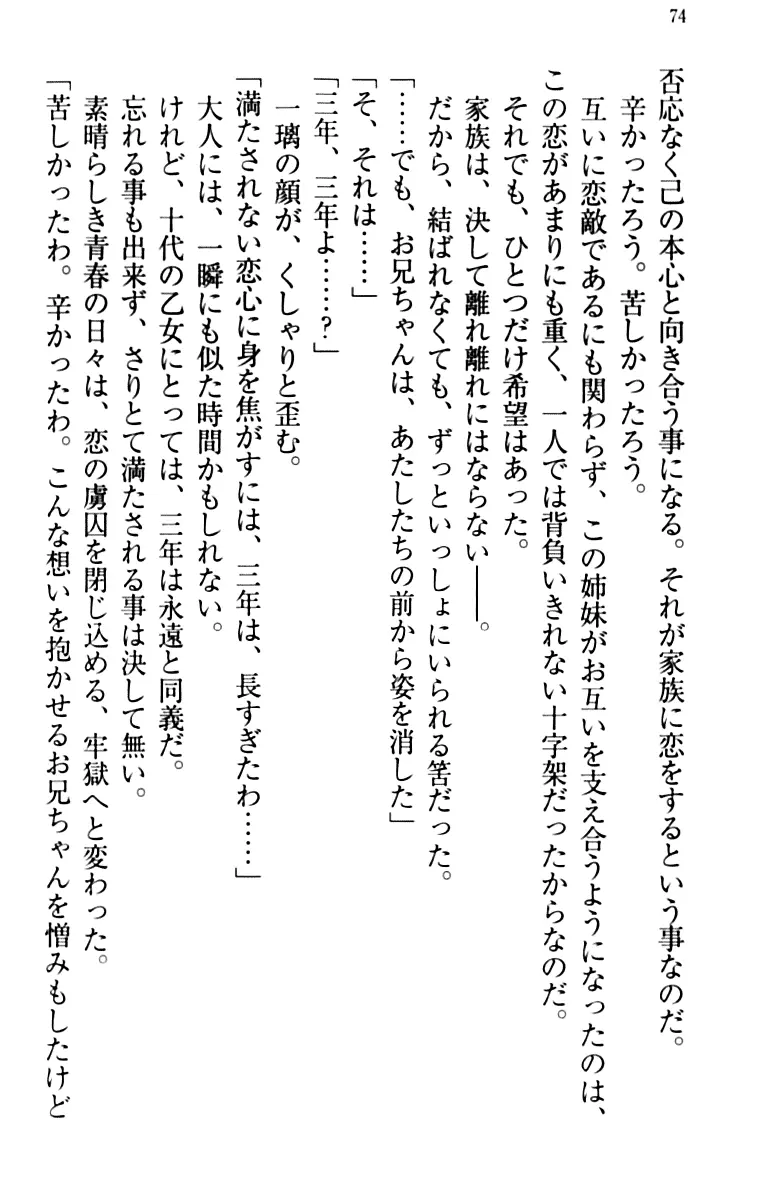 74
否応なく己の本心と向き合う事になる。それが家族に恋をするという事なのだ。
辛かったろう。苦しかったろう。
互いに恋敵であるにも関わらず、この姉妹がお互いを支え合うようになったのは、
この恋があまりにも重く、一人では背負いきれない十字架だったからなのだ。
それでも、ひとつだけ希望はあった。
家族は、決して離れ離れにはならない――。
だから、結ばれなくても、ずっといっしょにいられる筈だった。
「……でも、お兄ちゃんは、あたしたちの前から姿を消した」
「そ、それは……」
「三年、三年よ……?」
一璃の顔が、くしゃりと歪む。
「満たされない恋心に身を焦がすには、三年は、長すぎたわ……」
大人には、一瞬にも似た時間かもしれない。
けれど、十代の乙女にとっては、三年は永遠と同義だ。
忘れる事も出来ず、さりとて満たされる事は決して無い。
素晴らしき青春の日々は、恋の虜囚を閉じ込める、牢獄へと変わった。
「苦しかったわ。辛かったわ。こんな想いを抱かせるお兄ちゃんを憎みもしたけど